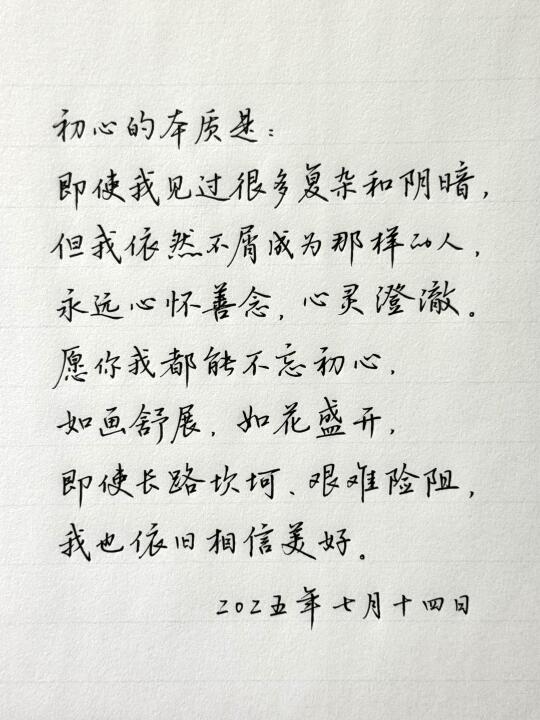 初心的本质是：
即使我见过很多复杂和阴暗，
但我依然不屑成为那样的人，
永远心怀善念，心灵澄澈。
愿你我都能不忘初心，
如画舒展，如花盛开，
即使长路坎坷、艰难险阻，
我也依旧相信美好。
2025年七月十四日